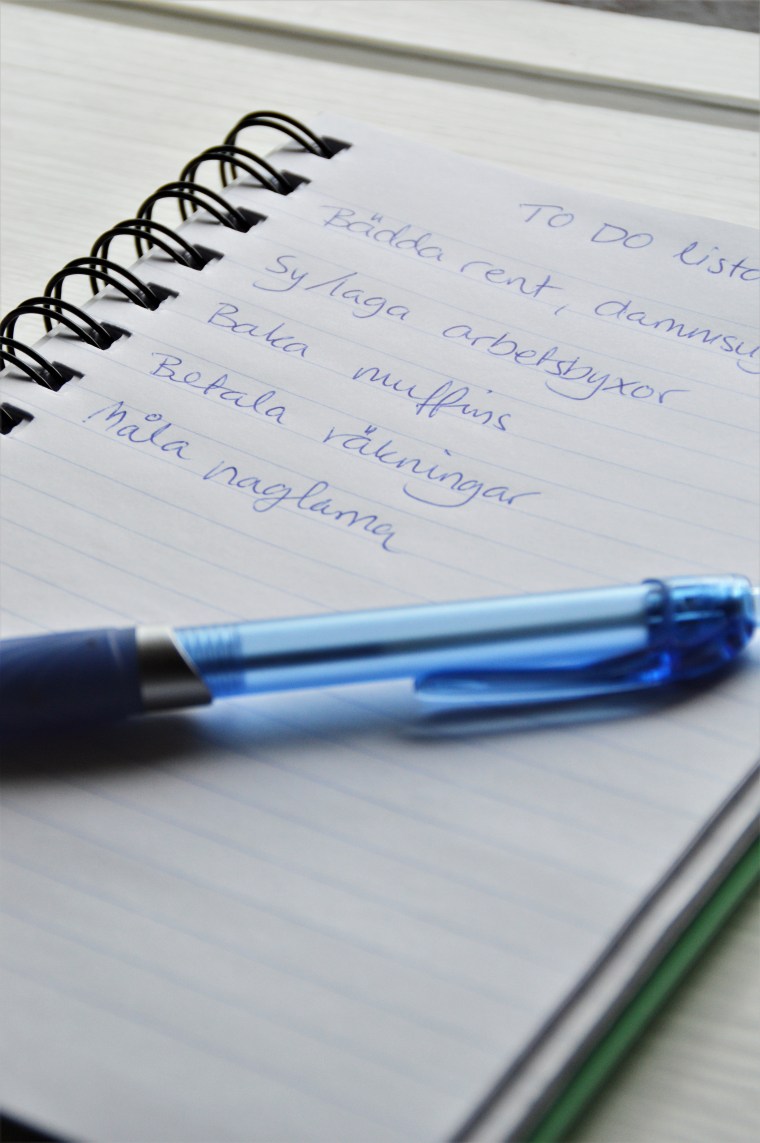 TO DO lista
Bädda rent, dammsug
Sy/laga arbetsbyxor
Baka muffins
Betala räkningar
Måla naglarna